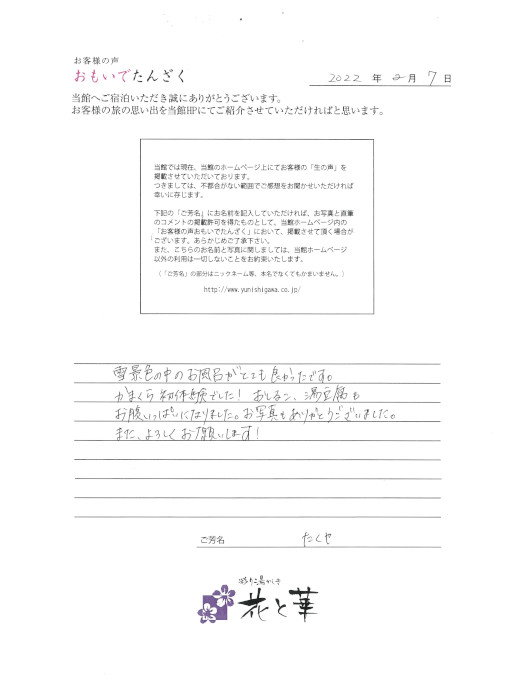 お客様の声
おもいでたんざく
2022 年 2 月 7 日
当館へご宿泊いただき誠にありがとうございます。
お客様の旅の思い出を当館HPにてご紹介させていただければと思います。
当館では現在、当館のホームページ上にてお客様の「生の声」を
掲載させていただいております。
つきましては、不都合がない範囲でご感想をお聞かせいただければ
幸いに存じます。
下記の「ご芳名」にお名前を記入していただければ、お写真と直筆
のコメントの掲載許可を得たものとして、当館ホームページ内の
「お客様の声おもいでたんざく」において、掲載させて頂く場合が
ございます。あらかじめご了承下さい。
また、こちらのお名前と写真に関しましては、当館ホームページ
以外の利用は一切しないことをお約束いたします。
(「ご芳名」の部分はニックネーム等、本名でなくてもかまいません。)
http://www.yunishigawa.co.jp/
雪景色の中のお風呂がとても良かったです。
かまくら初体験でした! おしるこ、湯豆腐も
お腹いっぱいになりました。お写真もありがとうございました。
また、よろしくお願いします!
ご芳名 たくや
花と華